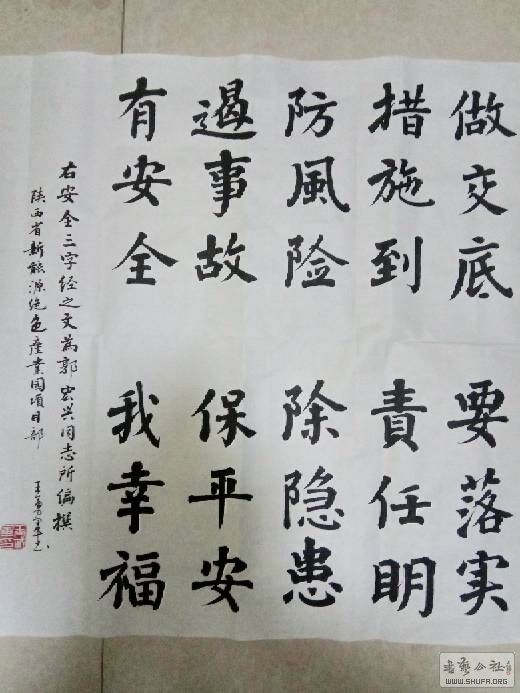 做交底 要落实
措施到 責任明
防風险 除隐患
遏事故 保平安
有安全 我幸福
右安全三字经之文為郭宏兴同志所编撰
陕西省新能源绝色産業园項目部
书艺公社
WWW.SHUFR.ORG